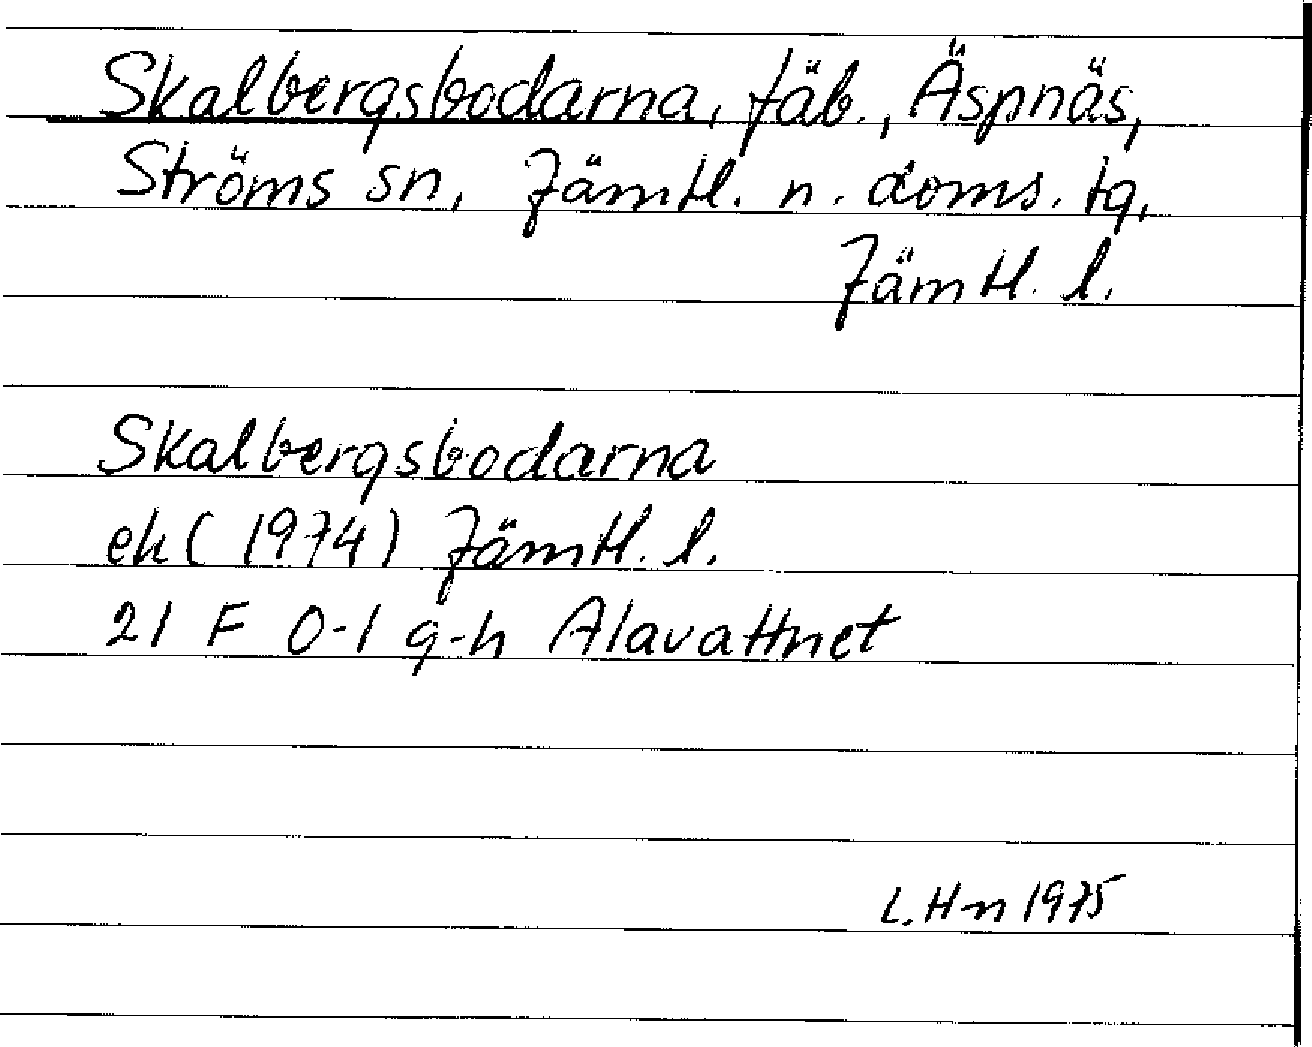 Skalbergsbodarna, fäb., Äspnäs,
Ströms sn, Jämtl. n. doms. tg,
Jämtl. l.
Skalbergsbodarna
ek (1974) Jämtl. l.
21 F 0-1 g-h Alavattnet
L. Hn 1975